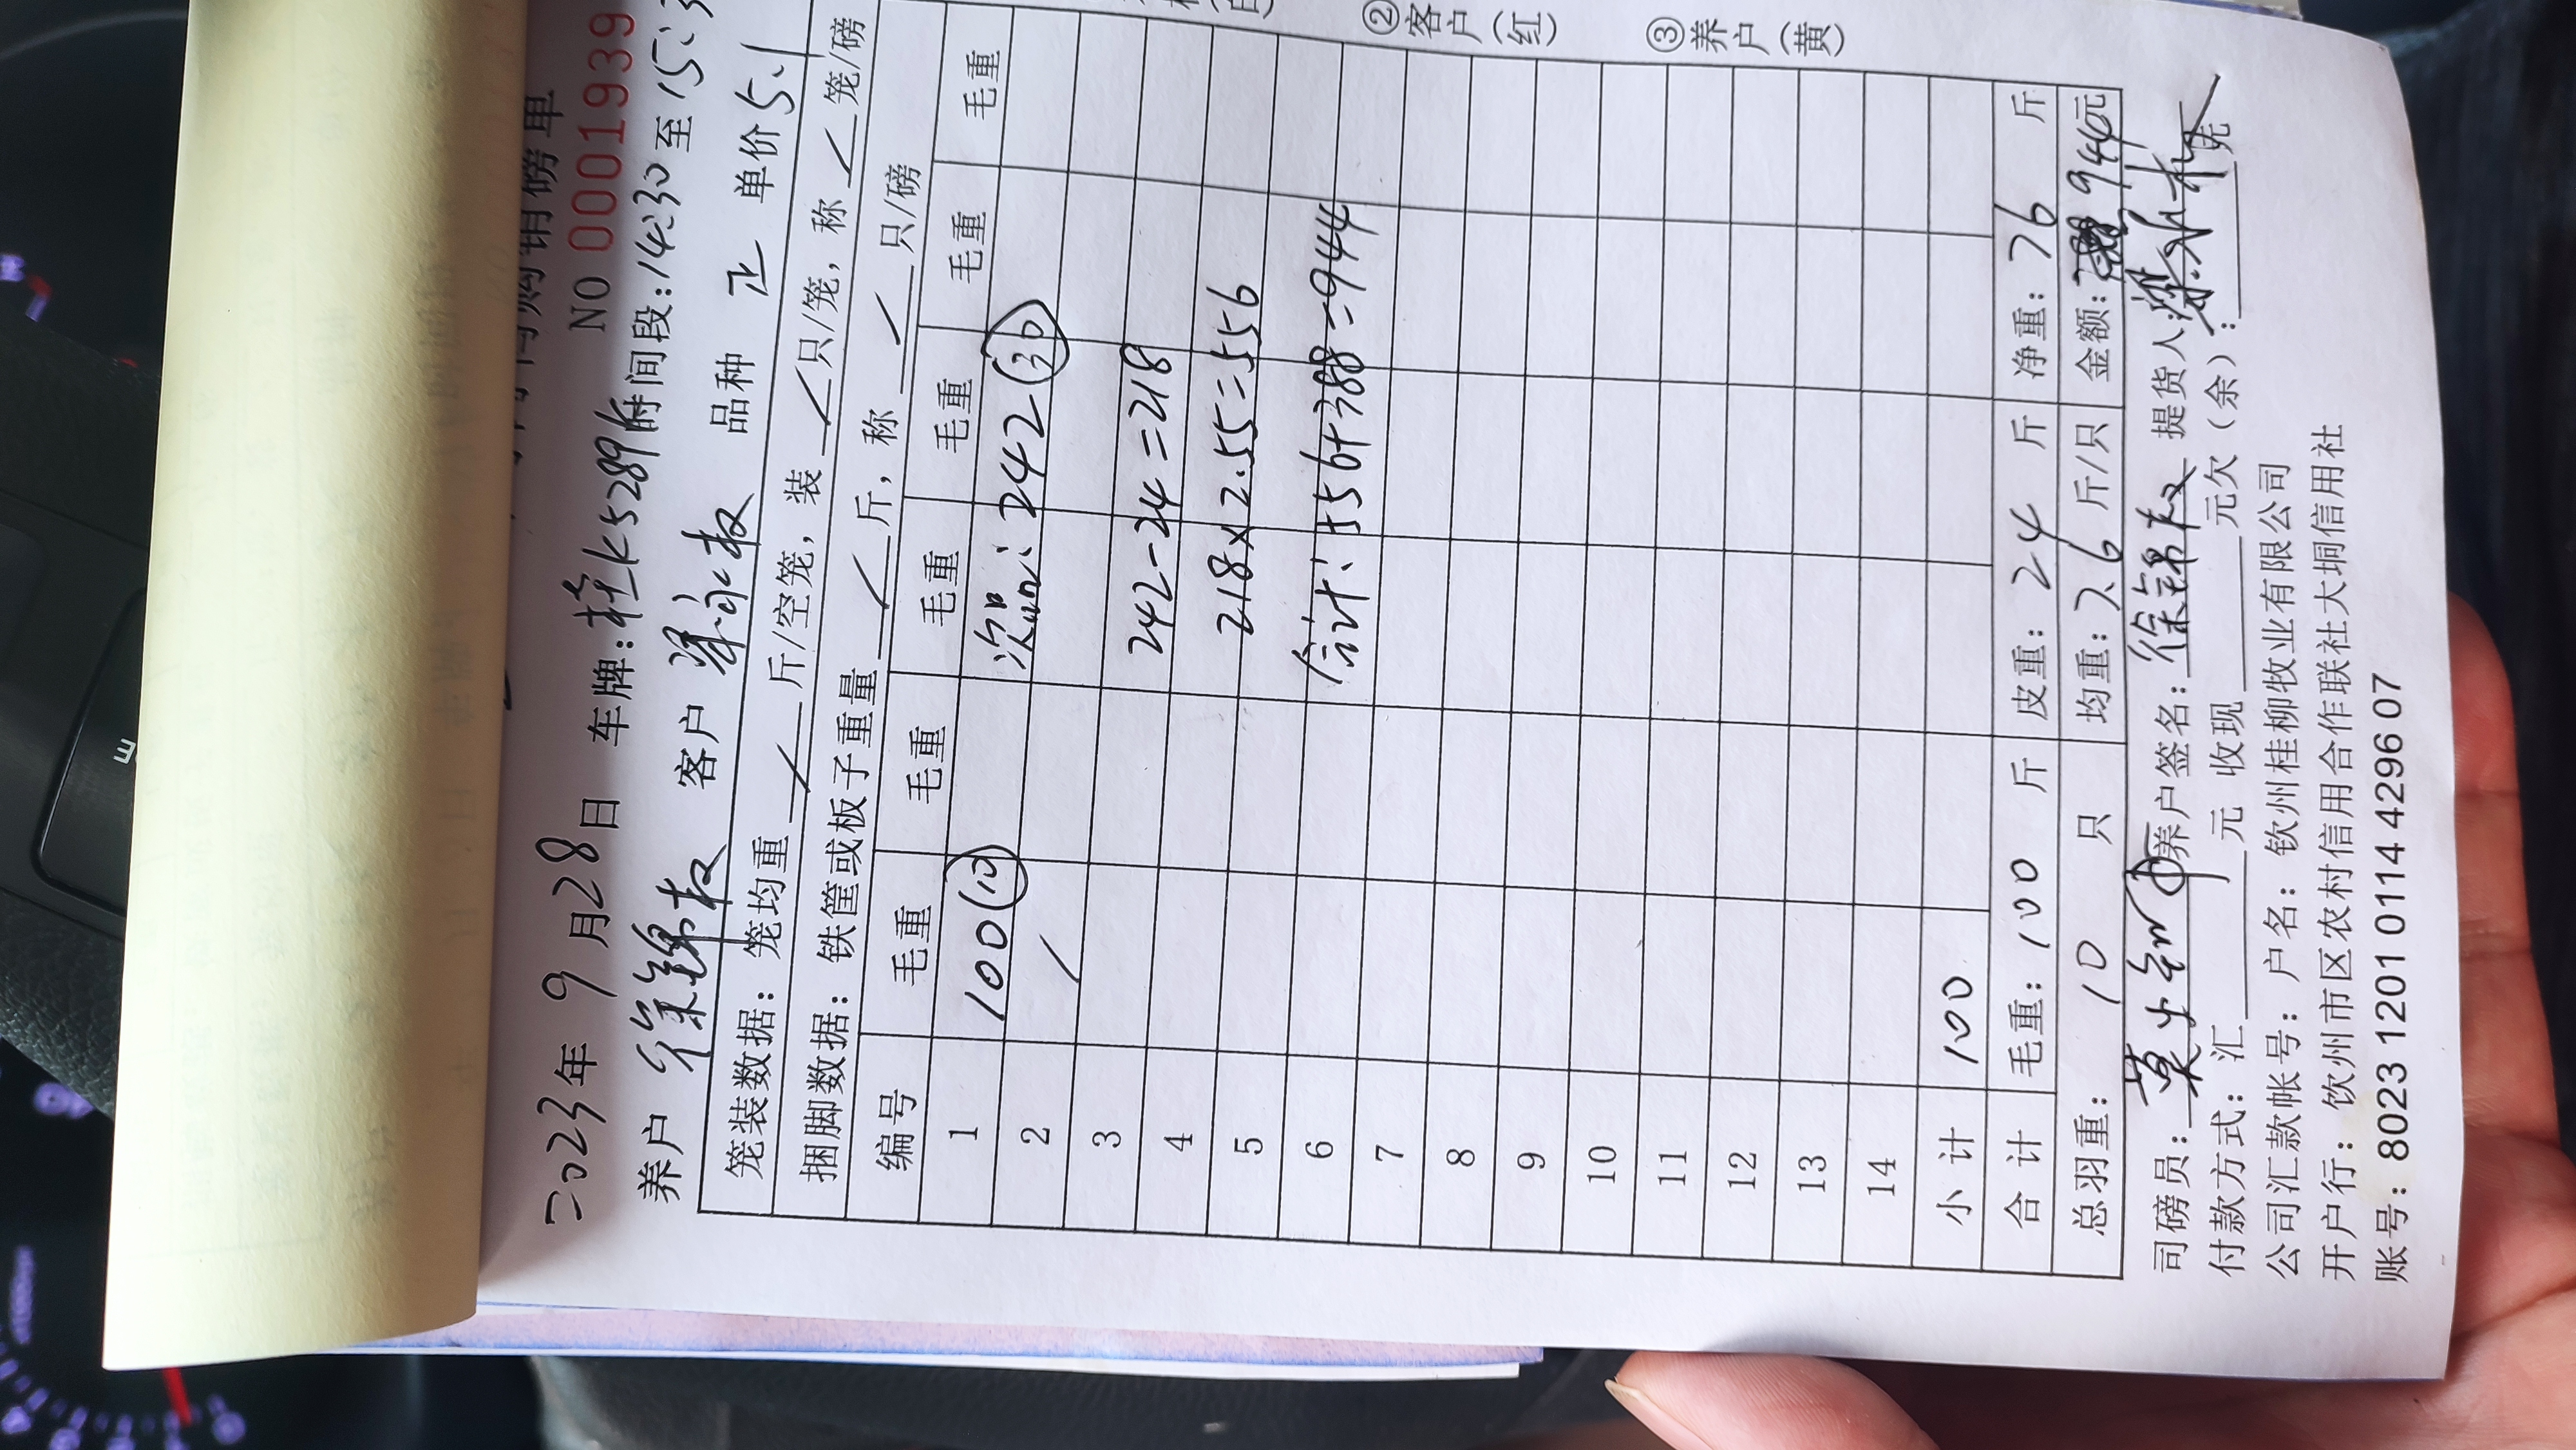 购销磅单
NO 0001939
二023年 9月28日 车牌:桂K5289 时间段:14:30至15:3
养户 徐锦权 客户 品种 正 单价5.1
笼装数据: 笼均重 / 斤/空笼, 装 / 只/笼, 称 / 笼/磅
捆脚数据: 铁筐或板子重量 / 斤, 称 / 只/磅
编号 毛重 毛重 毛重 毛重 毛重 毛重
1 100(10) 次品: 242(30)
2 /
3 242-24=218
4 218×2.55=556
5 合计: 556+388=944
6
7
8
9
10
11
12
13
14
小计 100
合计 毛重: 100 斤 皮重: 24 斤 净重: 76 斤
总羽重: 10 只 均重: 7.6 斤/只 金额: 944元
司磅员: 养户签名: 徐锦权 提货人:
付款方式: 汇 元 收现 元欠(余): 元
公司汇款帐号: 户名: 钦州桂柳牧业有限公司
开户行: 钦州市区农村信用合作联社大垌信用社
账号: 8023 1201 0114 4296 07
②客户(红)
③养户(黄)